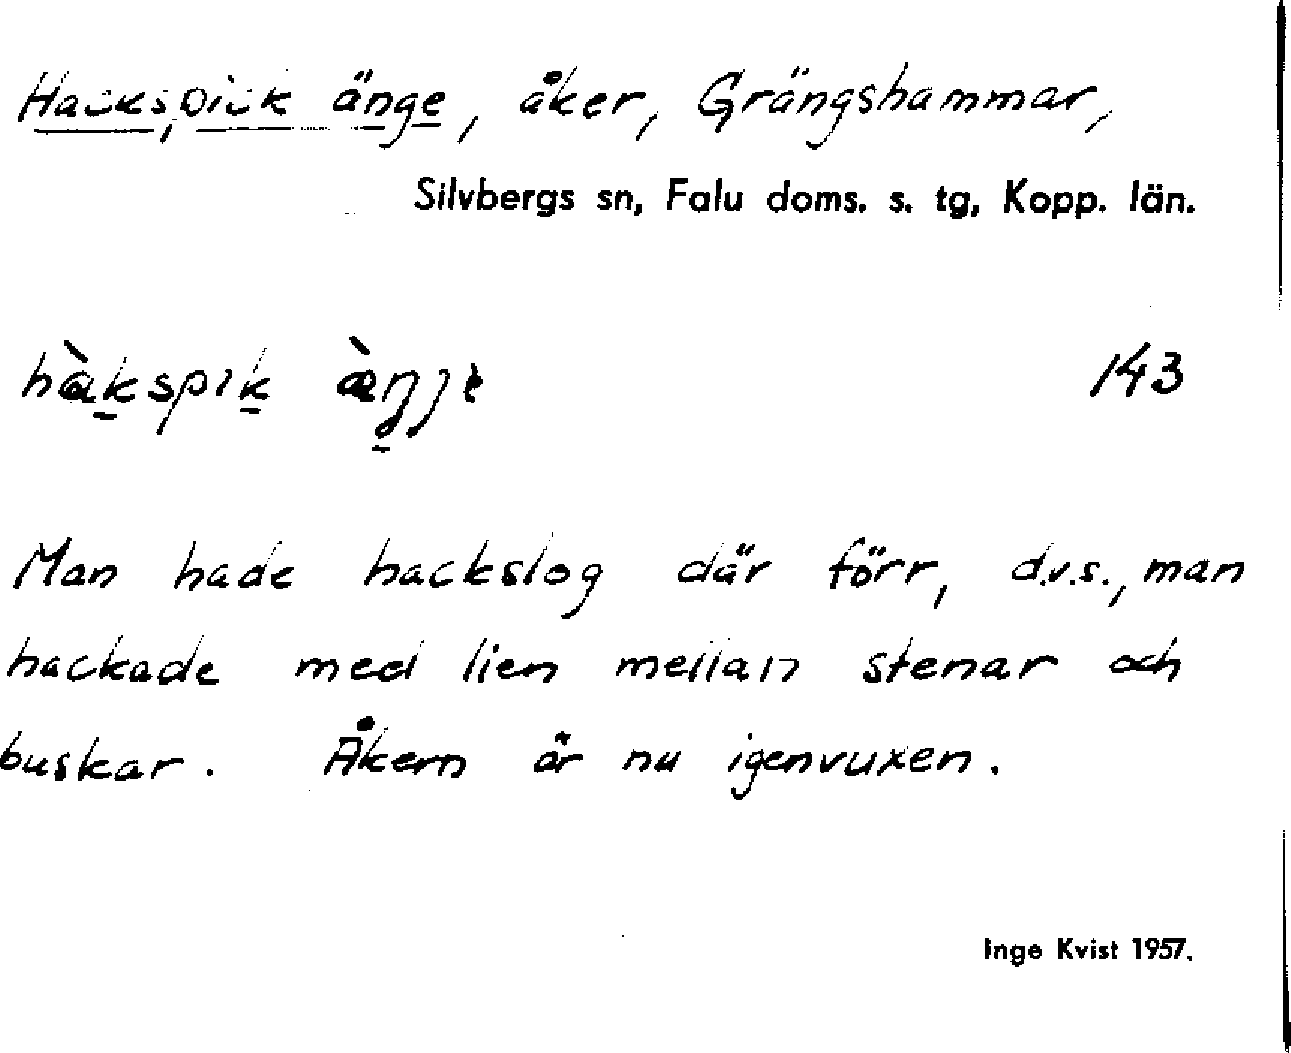 Hackspick änge, åker, Grängshammar,
Silvbergs sn, Falu doms. s. tg, Kopp. län.
hàkspik æ̀ŋje
143
Man hade hackslog där förr, d.v.s., man
hackade med lien mellan stenar och
buskar. Åkern är nu igenvuxen.
Inge Kvist 1957.